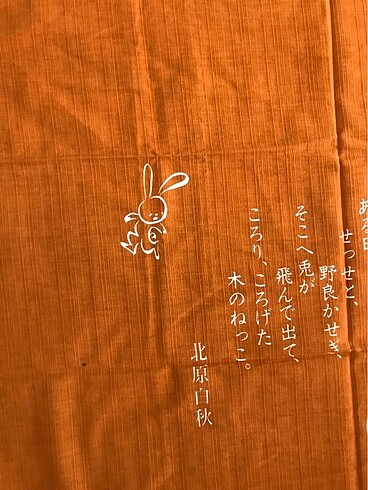 ある日
せっせと、
野良かせぎ、
そこへ兎が
飛んで出て、
ころり、ころげた
木のねっこ。
北原白秋